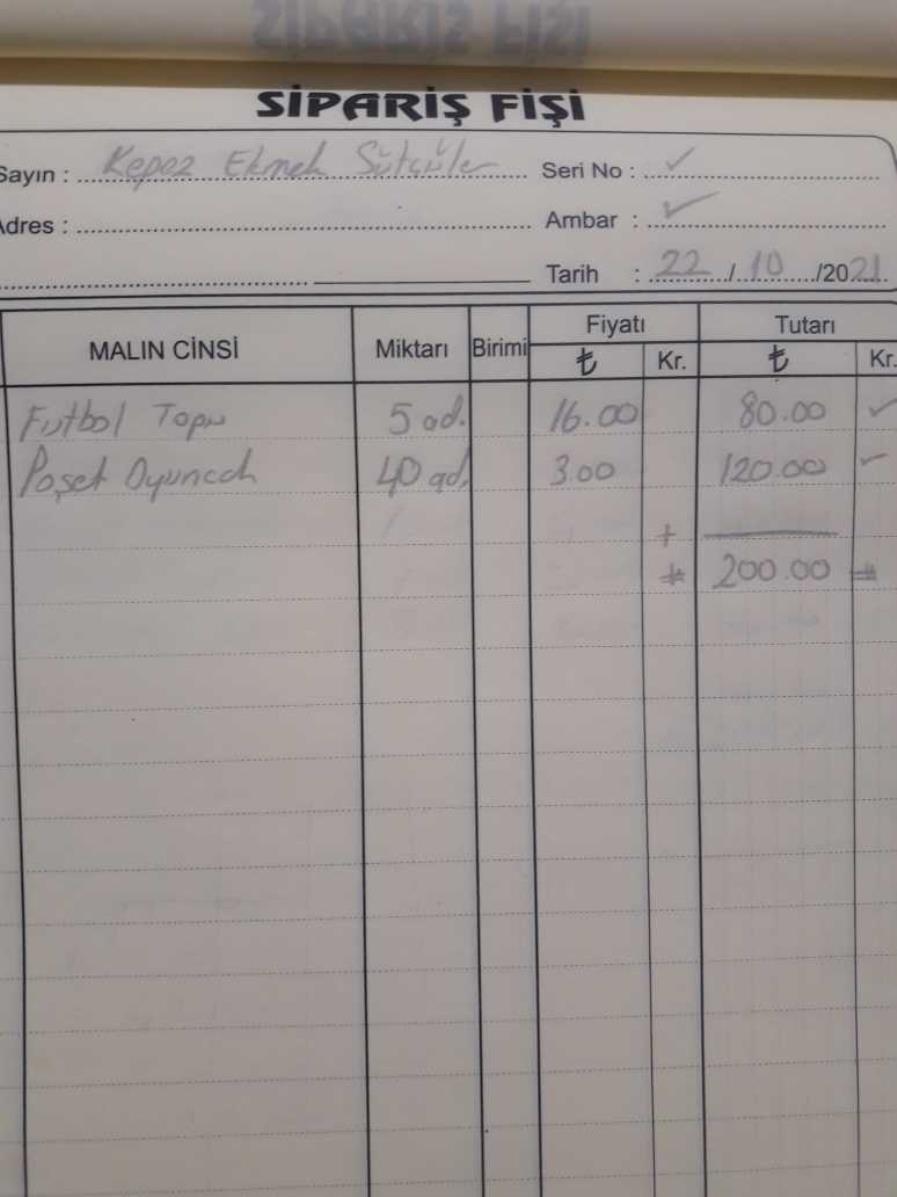 SİPARİŞ FİŞİ
Sayın : Kepez Ekmek Sütçüler Seri No : ✓
Adres : Ambar : ✓
Tarih : 22 / 10 /2021
MALIN CİNSİ Miktarı Birimi Fiyatı Tutarı
₺ Kr. ₺ Kr.
Futbol Topu 5 ad. 16.00 80.00 ✓
Poşet Oyuncak 40 ad. 3.00 120.00 ✓
+
# 200.00 #